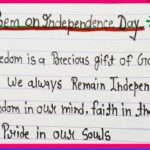 Poem on Independence Day
Freedom is a Precious gift of God
We always Remain Independ
eedom in our mind, faith in th
Pride in our Souls